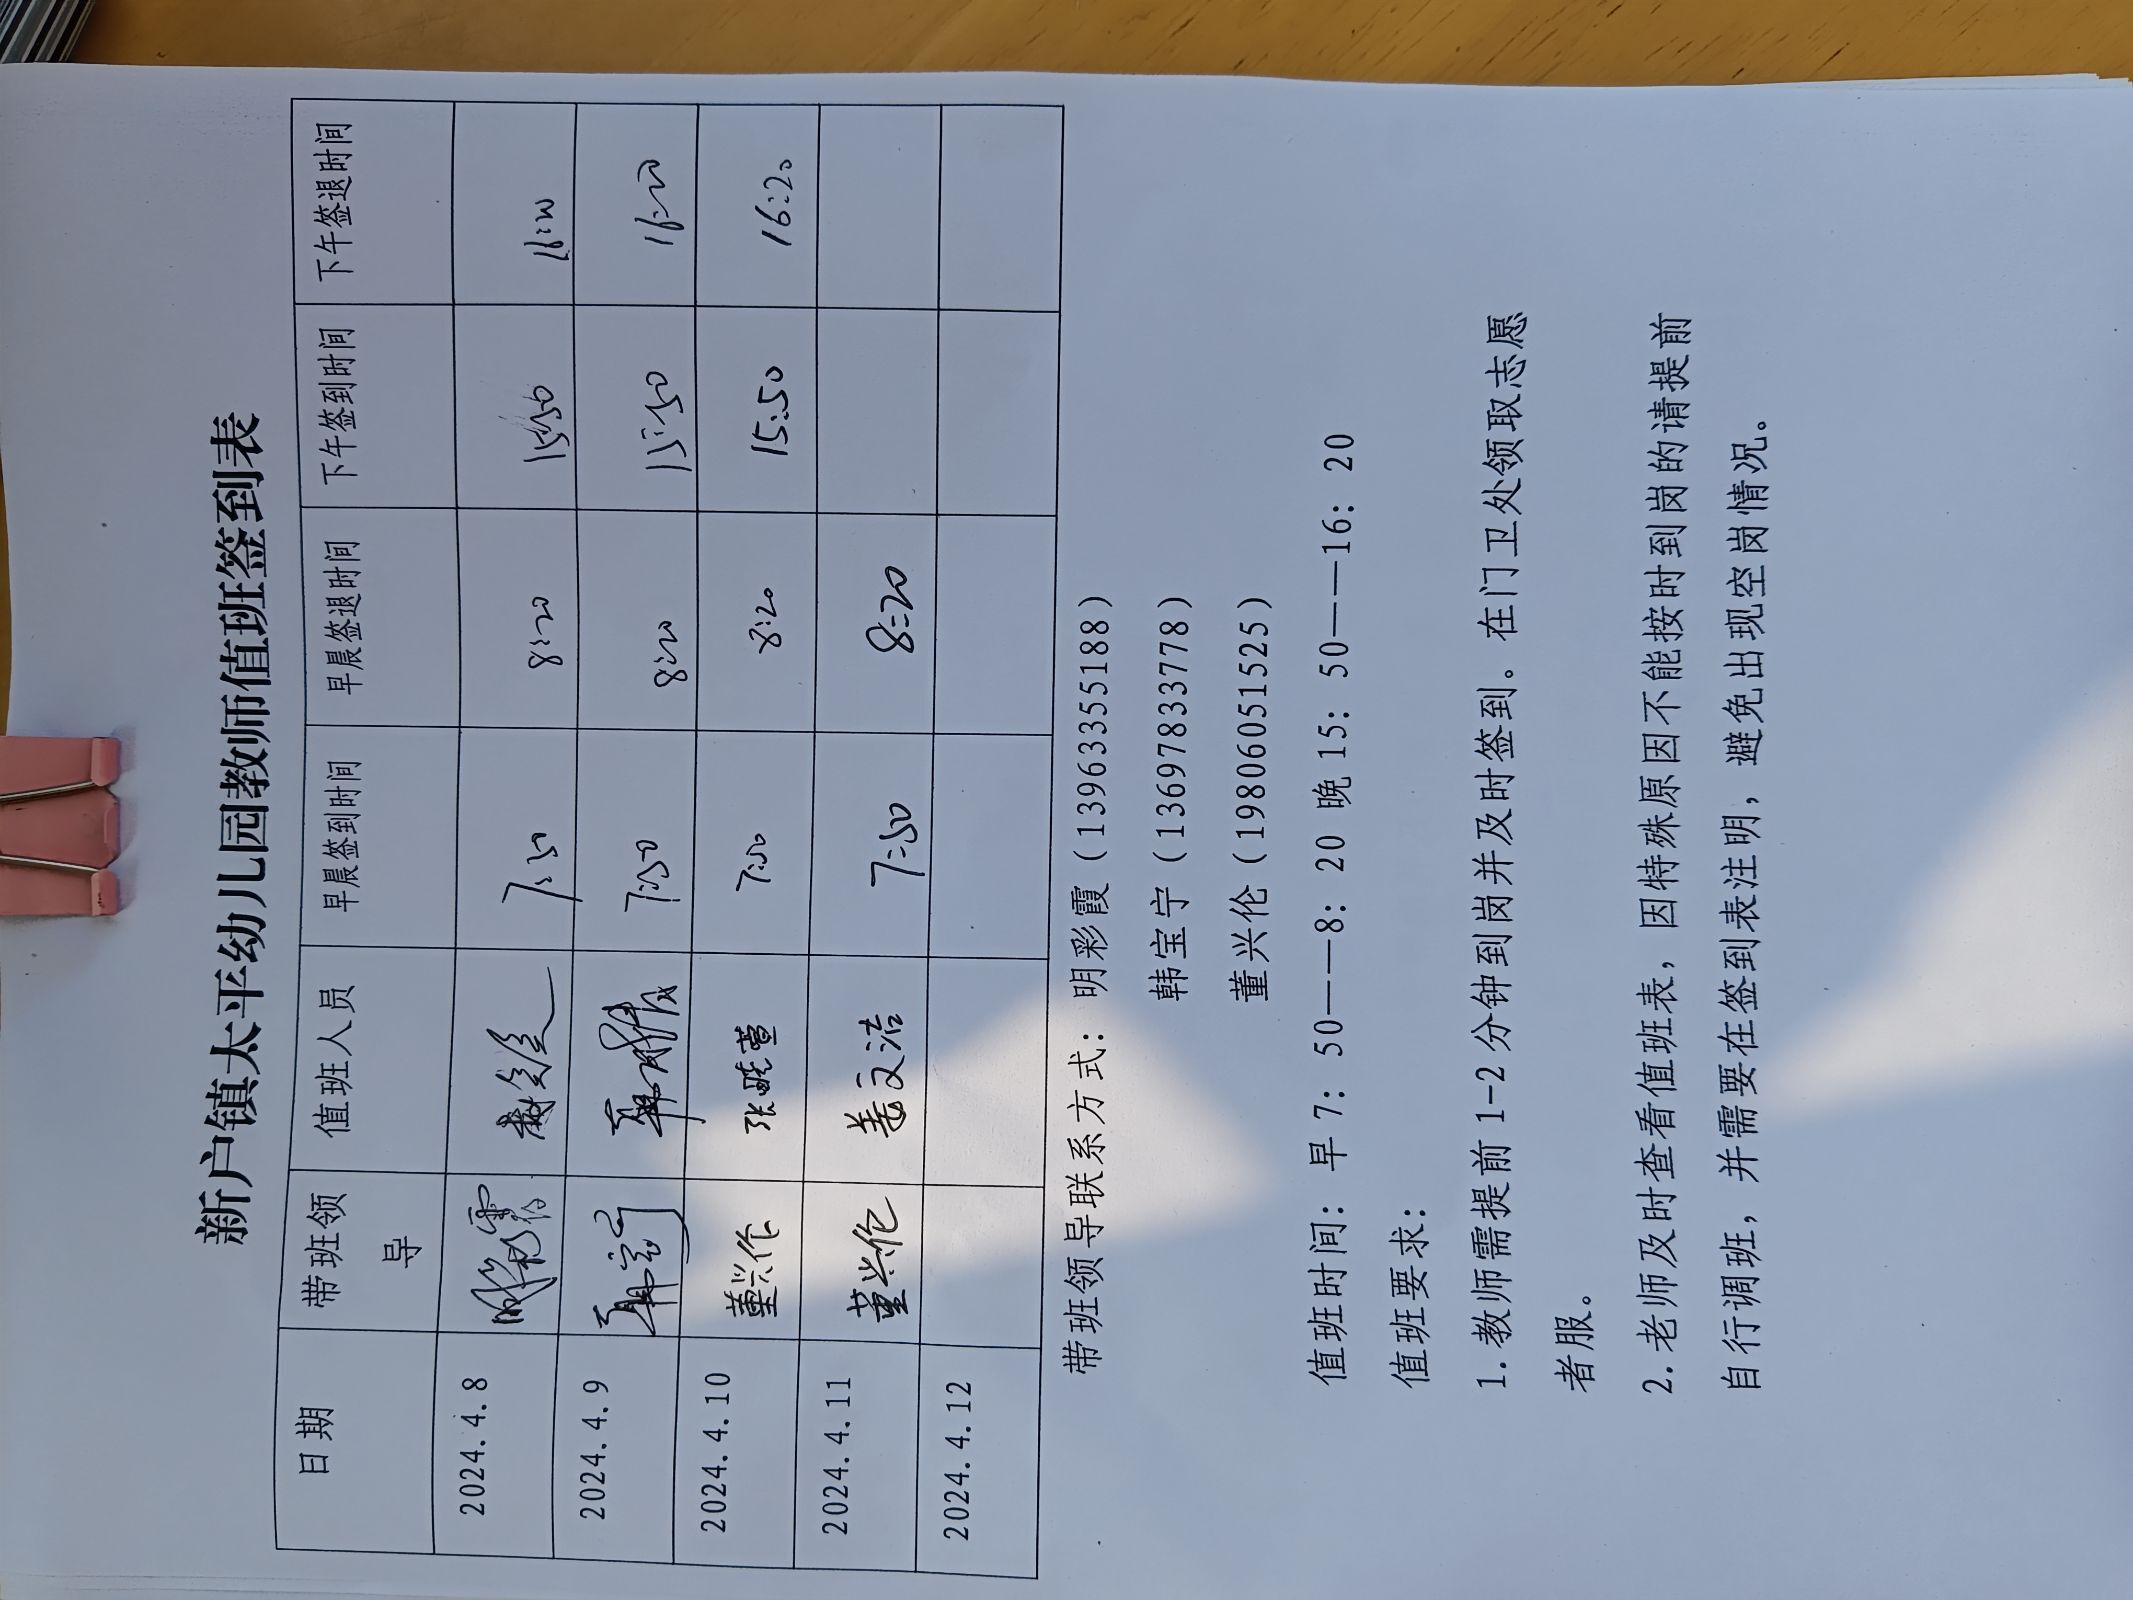 新户镇太平幼儿园教师值班签到表
日期 带班领导 值班人员 早晨签到时间 早晨签退时间 下午签到时间 下午签退时间
2024.4.8 明彩霞 7:50 8:20 15:50 16:20
2024.4.9 韩宝宁 7:50 8:20 15:50 16:20
2024.4.10 董兴伦 张晓萱 7:50 8:20 15:50 16:20
2024.4.11 董兴伦 姜文洁 7:50 8:20
2024.4.12
带班领导联系方式：明彩霞（13963355188）
韩宝宁（13697833778）
董兴伦（19806051525）
值班时间：早 7：50——8：20 晚 15：50——16：20
值班要求：
1.教师需提前 1-2 分钟到岗并及时签到。在门卫处领取志愿
者服。
2.老师及时查看值班表，因特殊原因不能按时到岗的请提前
自行调班，并需要在签到表注明，避免出现空岗情况。